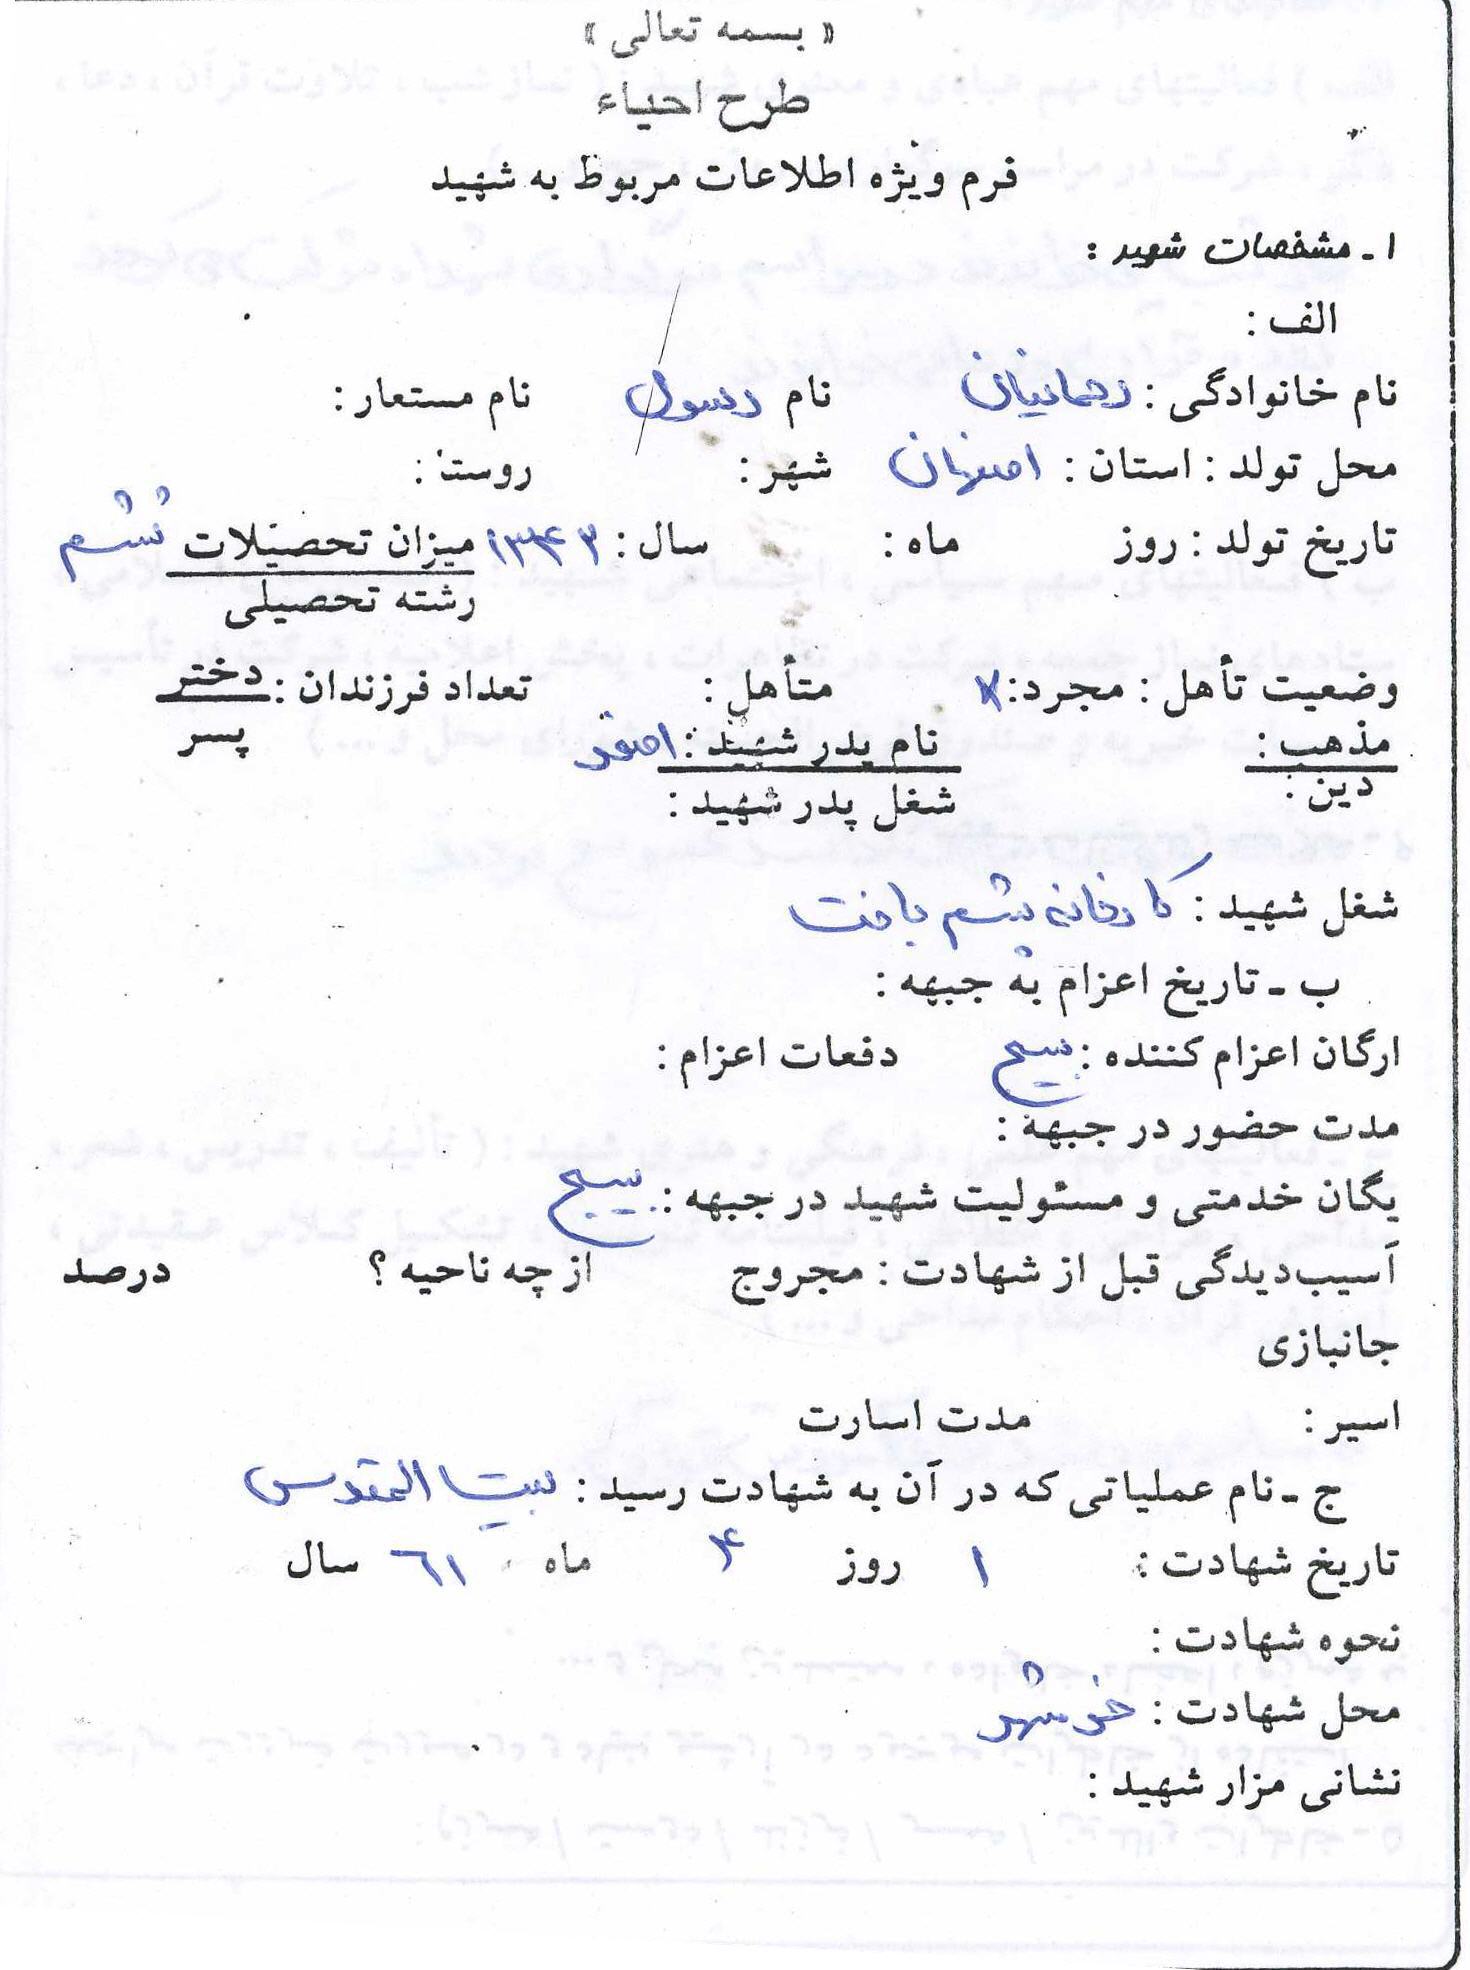 « بسمه تعالی »
طرح احیاء
فرم ویژه اطلاعات مربوط به شهید
۱ ـ مشخصات شهید :
الف :
نام خانوادگی : رحمانیان نام رسول نام مستعار :
محل تولد : استان : اصفهان شهر : روستا :
تاریخ تولد : روز ماه : سال : ۱۳۴۳ میزان تحصیلات ششم
رشته تحصیلی
وضعیت تأهل : مجرد : x متأهل : تعداد فرزندان : دختر
پسر
مذهب : نام پدر شهید : اصغر
دین : شغل پدر شهید :
شغل شهید : کارخانه پشم بافت
ب ـ تاریخ اعزام به جبهه :
ارگان اعزام کننده : بسیج دفعات اعزام :
مدت حضور در جبهه :
یگان خدمتی و مسئولیت شهید در جبهه : بسیج
آسیب‌دیدگی قبل از شهادت : مجروح از چه ناحیه ؟ درصد
جانبازی
اسیر : مدت اسارت
ج ـ نام عملیاتی که در آن به شهادت رسید : بیت المقدس
تاریخ شهادت : ۱ روز ۴ ماه ۶۱ سال
نحوه شهادت :
محل شهادت : خرمشهر
نشانی مزار شهید :